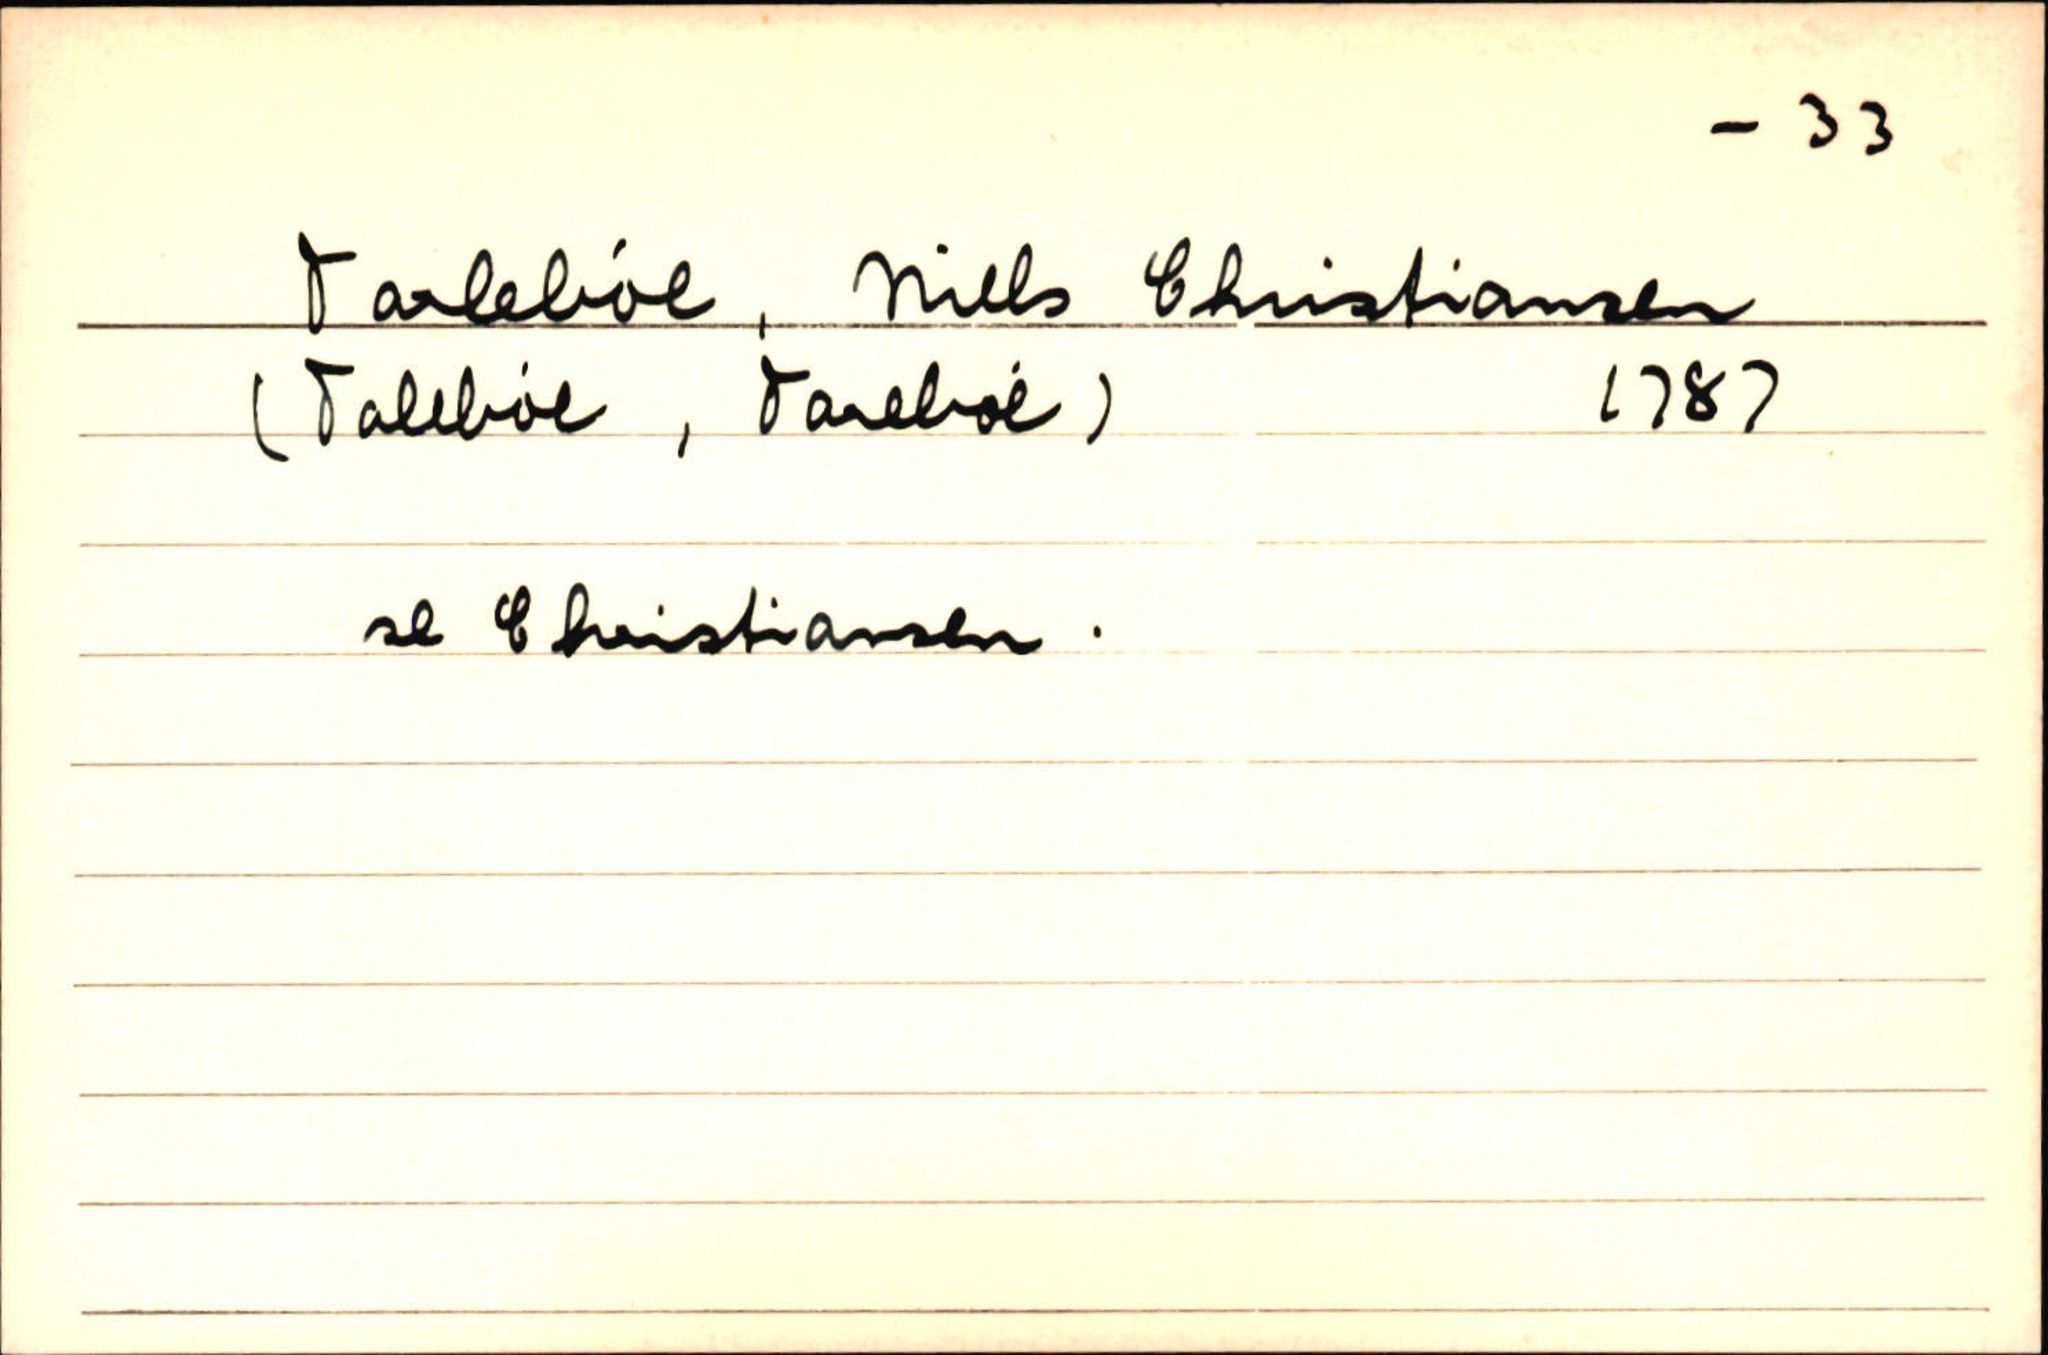 - 33
Tarlebøe, Niels Christiansen
(Talebøe, Tarebøe) 1787
se Christiansen.